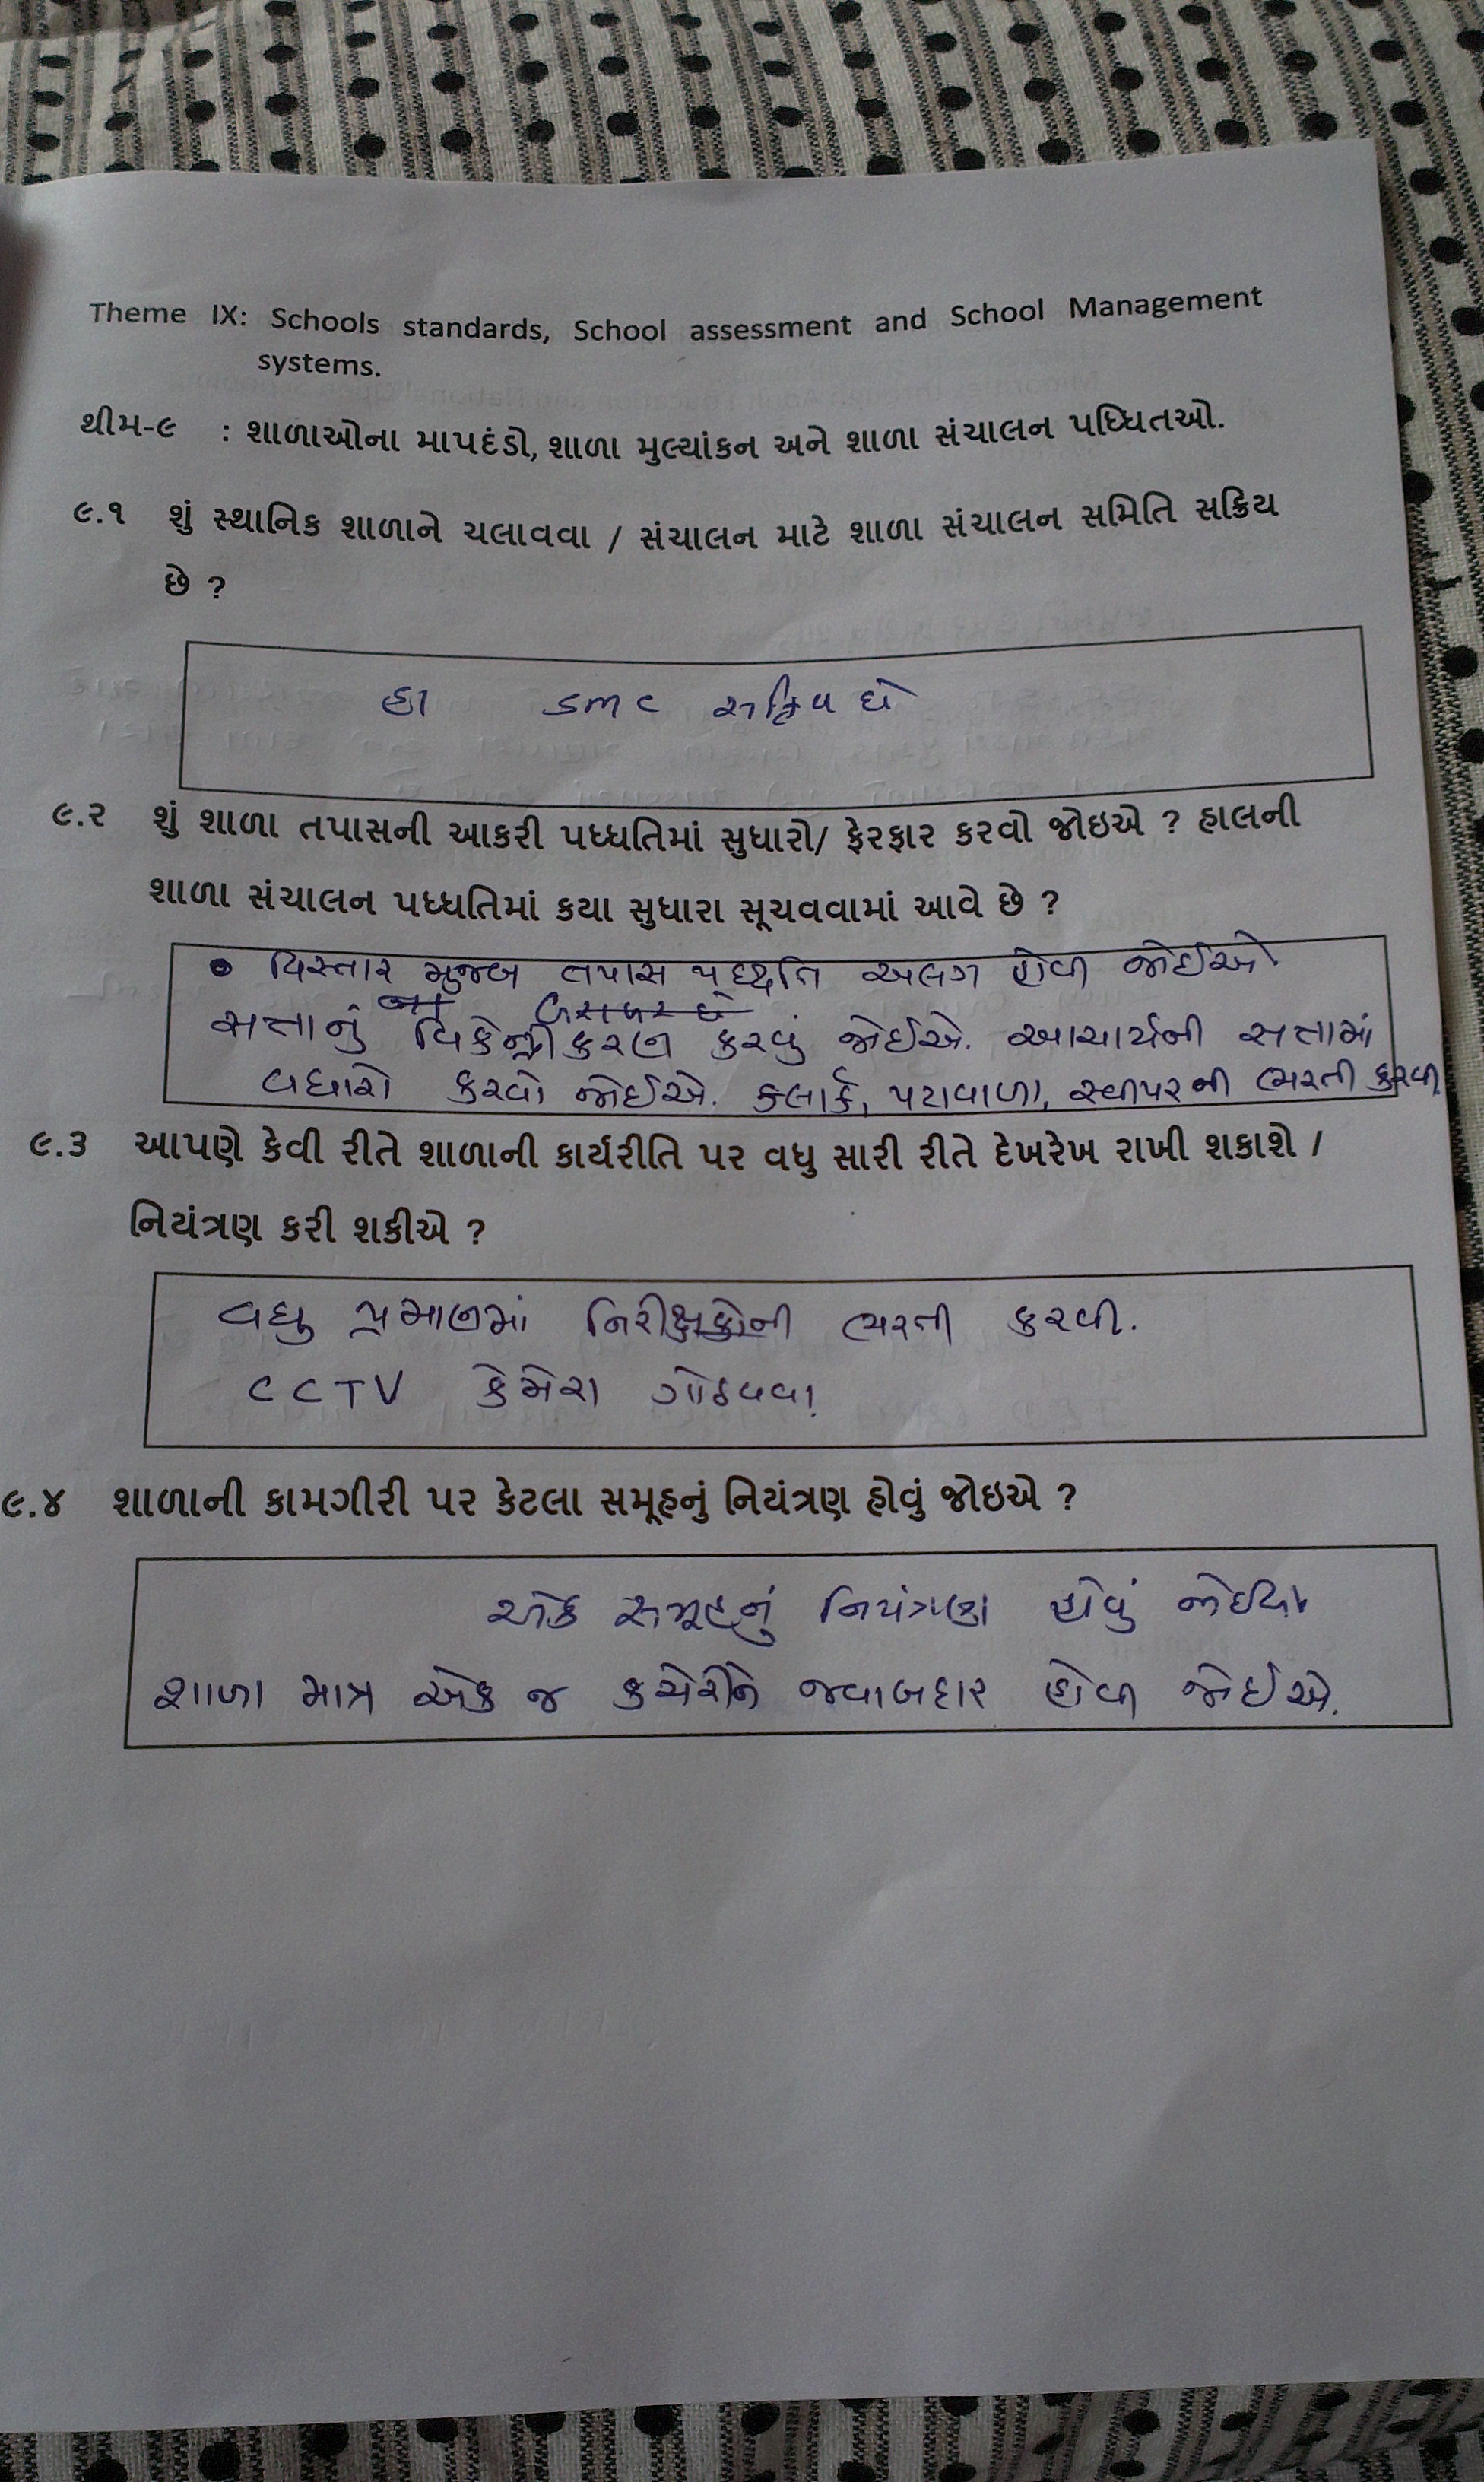 Theme IX: Schools standards, School assessment and School Management
systems.
થીમ-૯ : શાળાઓના માપદંડો, શાળા મુલ્યાંકન અને શાળા સંચાલન પધ્ધિતઓ.
૯.૧ શું સ્થાનિક શાળાને ચલાવવા / સંચાલન માટે શાળા સંચાલન સમિતિ સક્રિય
છે ?
હા SMC સક્રિય છે
૯.૨ શું શાળા તપાસની આકરી પધ્ધતિમાં સુધારો/ ફેરફાર કરવો જોઇએ ? હાલની
શાળા સંચાલન પધ્ધતિમાં કયા સુધારા સૂચવવામાં આવે છે ?
• વિસ્તાર મુજબ તપાસ પધ્ધતિ અલગ હોવી જોઈએ
સત્તાનું વિકેન્દ્રીકરણ કરવું જોઈએ. આચાર્યની સત્તામાં
વધારો કરવો જોઈએ. કલાર્ક, પટાવાળા, સ્વીપરની ભરતી કરવી
૯.૩ આપણે કેવી રીતે શાળાની કાર્યરીતિ પર વધુ સારી રીતે દેખરેખ રાખી શકાશે /
નિયંત્રણ કરી શકીએ ?
વધુ પ્રમાણમાં નિરીક્ષકોની ભરતી કરવી.
CCTV કેમેરા ગોઠવવા.
૯.૪ શાળાની કામગીરી પર કેટલા સમૂહનું નિયંત્રણ હોવું જોઇએ ?
એક સમૂહનું નિયંત્રણ હોવું જોઈએ
શાળા માત્ર એક જ કચેરીને જવાબદાર હોવી જોઈએ.